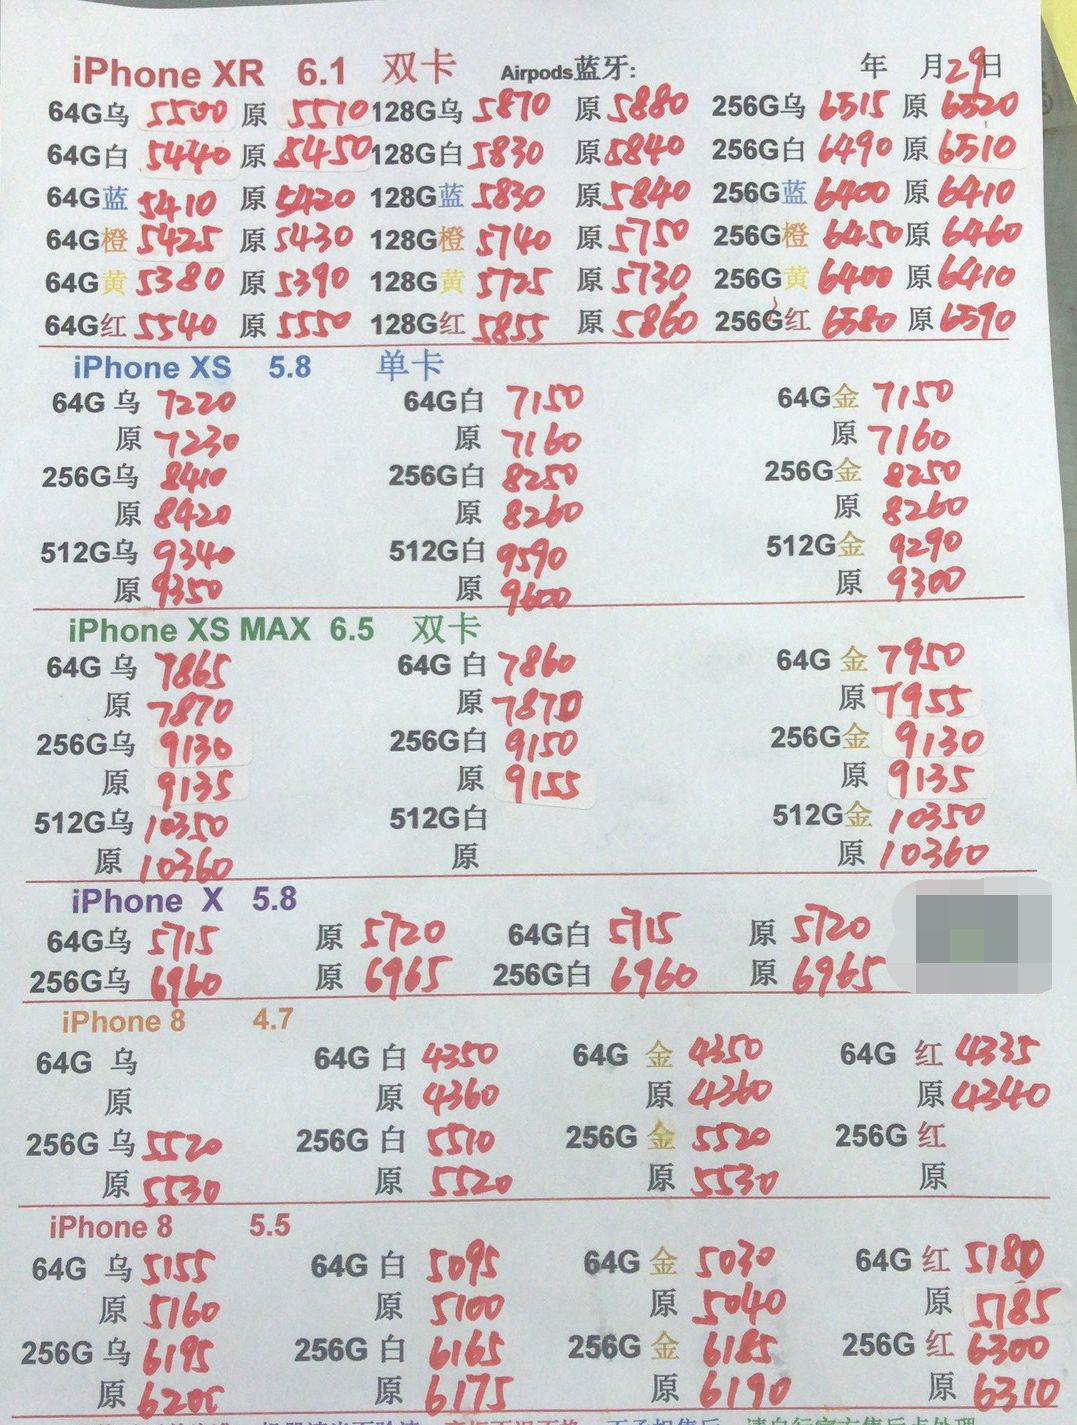 iPhone XR 6.1 双卡 Airpods蓝牙: 年 月29日
64G乌 5500 原 5510 128G乌 5870 原 5880 256G乌 6515 原 6520
64G白 5440 原 5450 128G白 5830 原 5840 256G白 6490 原 6510
64G蓝 5410 原 5420 128G蓝 5830 原 5840 256G蓝 6400 原 6410
64G橙 5425 原 5430 128G橙 5740 原 5750 256G橙 6450 原 6460
64G黄 5380 原 5390 128G黄 5725 原 5730 256G黄 6400 原 6410
64G红 5540 原 5550 128G红 5855 原 5860 256G红 6580 原 6590
iPhone XS 5.8 单卡
64G 乌 7220 64G白 7150 64G金 7150
原 7230 原 7160 原 7160
256G乌 8410 256G白 8250 256G金 8250
原 8420 原 8260 原 8260
512G乌 9340 512G白 9590 512G金 9290
原 9350 原 9600 原 9300
iPhone XS MAX 6.5 双卡
64G 乌 7865 64G 白 7860 64G 金 7950
原 7870 原 7870 原 7955
256G乌 9130 256G白 9150 256G金 9130
原 9135 原 9155 原 9135
512G乌 10350 512G白 512G金 10350
原 10360 原 原 10360
iPhone X 5.8
64G乌 5715 原 5720 64G白 5715 原 5720
256G乌 6960 原 6965 256G白 6960 原 6965
iPhone 8 4.7
64G 乌 64G 白 4350 64G 金 4350 64G 红 4335
原 原 4360 原 4360 原 4340
256G 乌 5520 256G 白 5510 256G 金 5520 256G 红
原 5530 原 5520 原 5530 原
iPhone 8 5.5
64G 乌 5155 64G 白 5095 64G 金 5030 64G 红 5180
原 5160 原 5100 原 5040 原 5185
256G 乌 6195 256G 白 6165 256G 金 6185 256G 红 6300
原 6205 原 6175 原 6190 原 6310